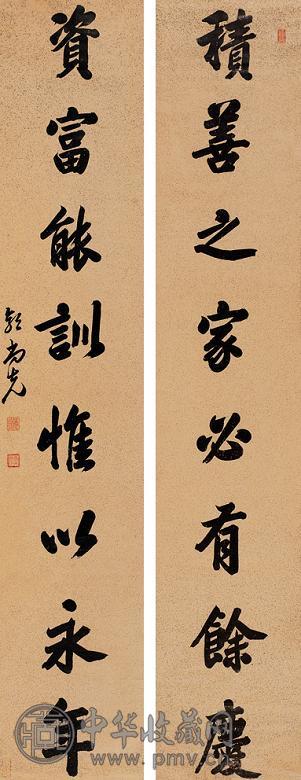 積善之家必有餘慶
資富能訓惟以永年
郭尚先
中华收藏网
www.pmv.cn